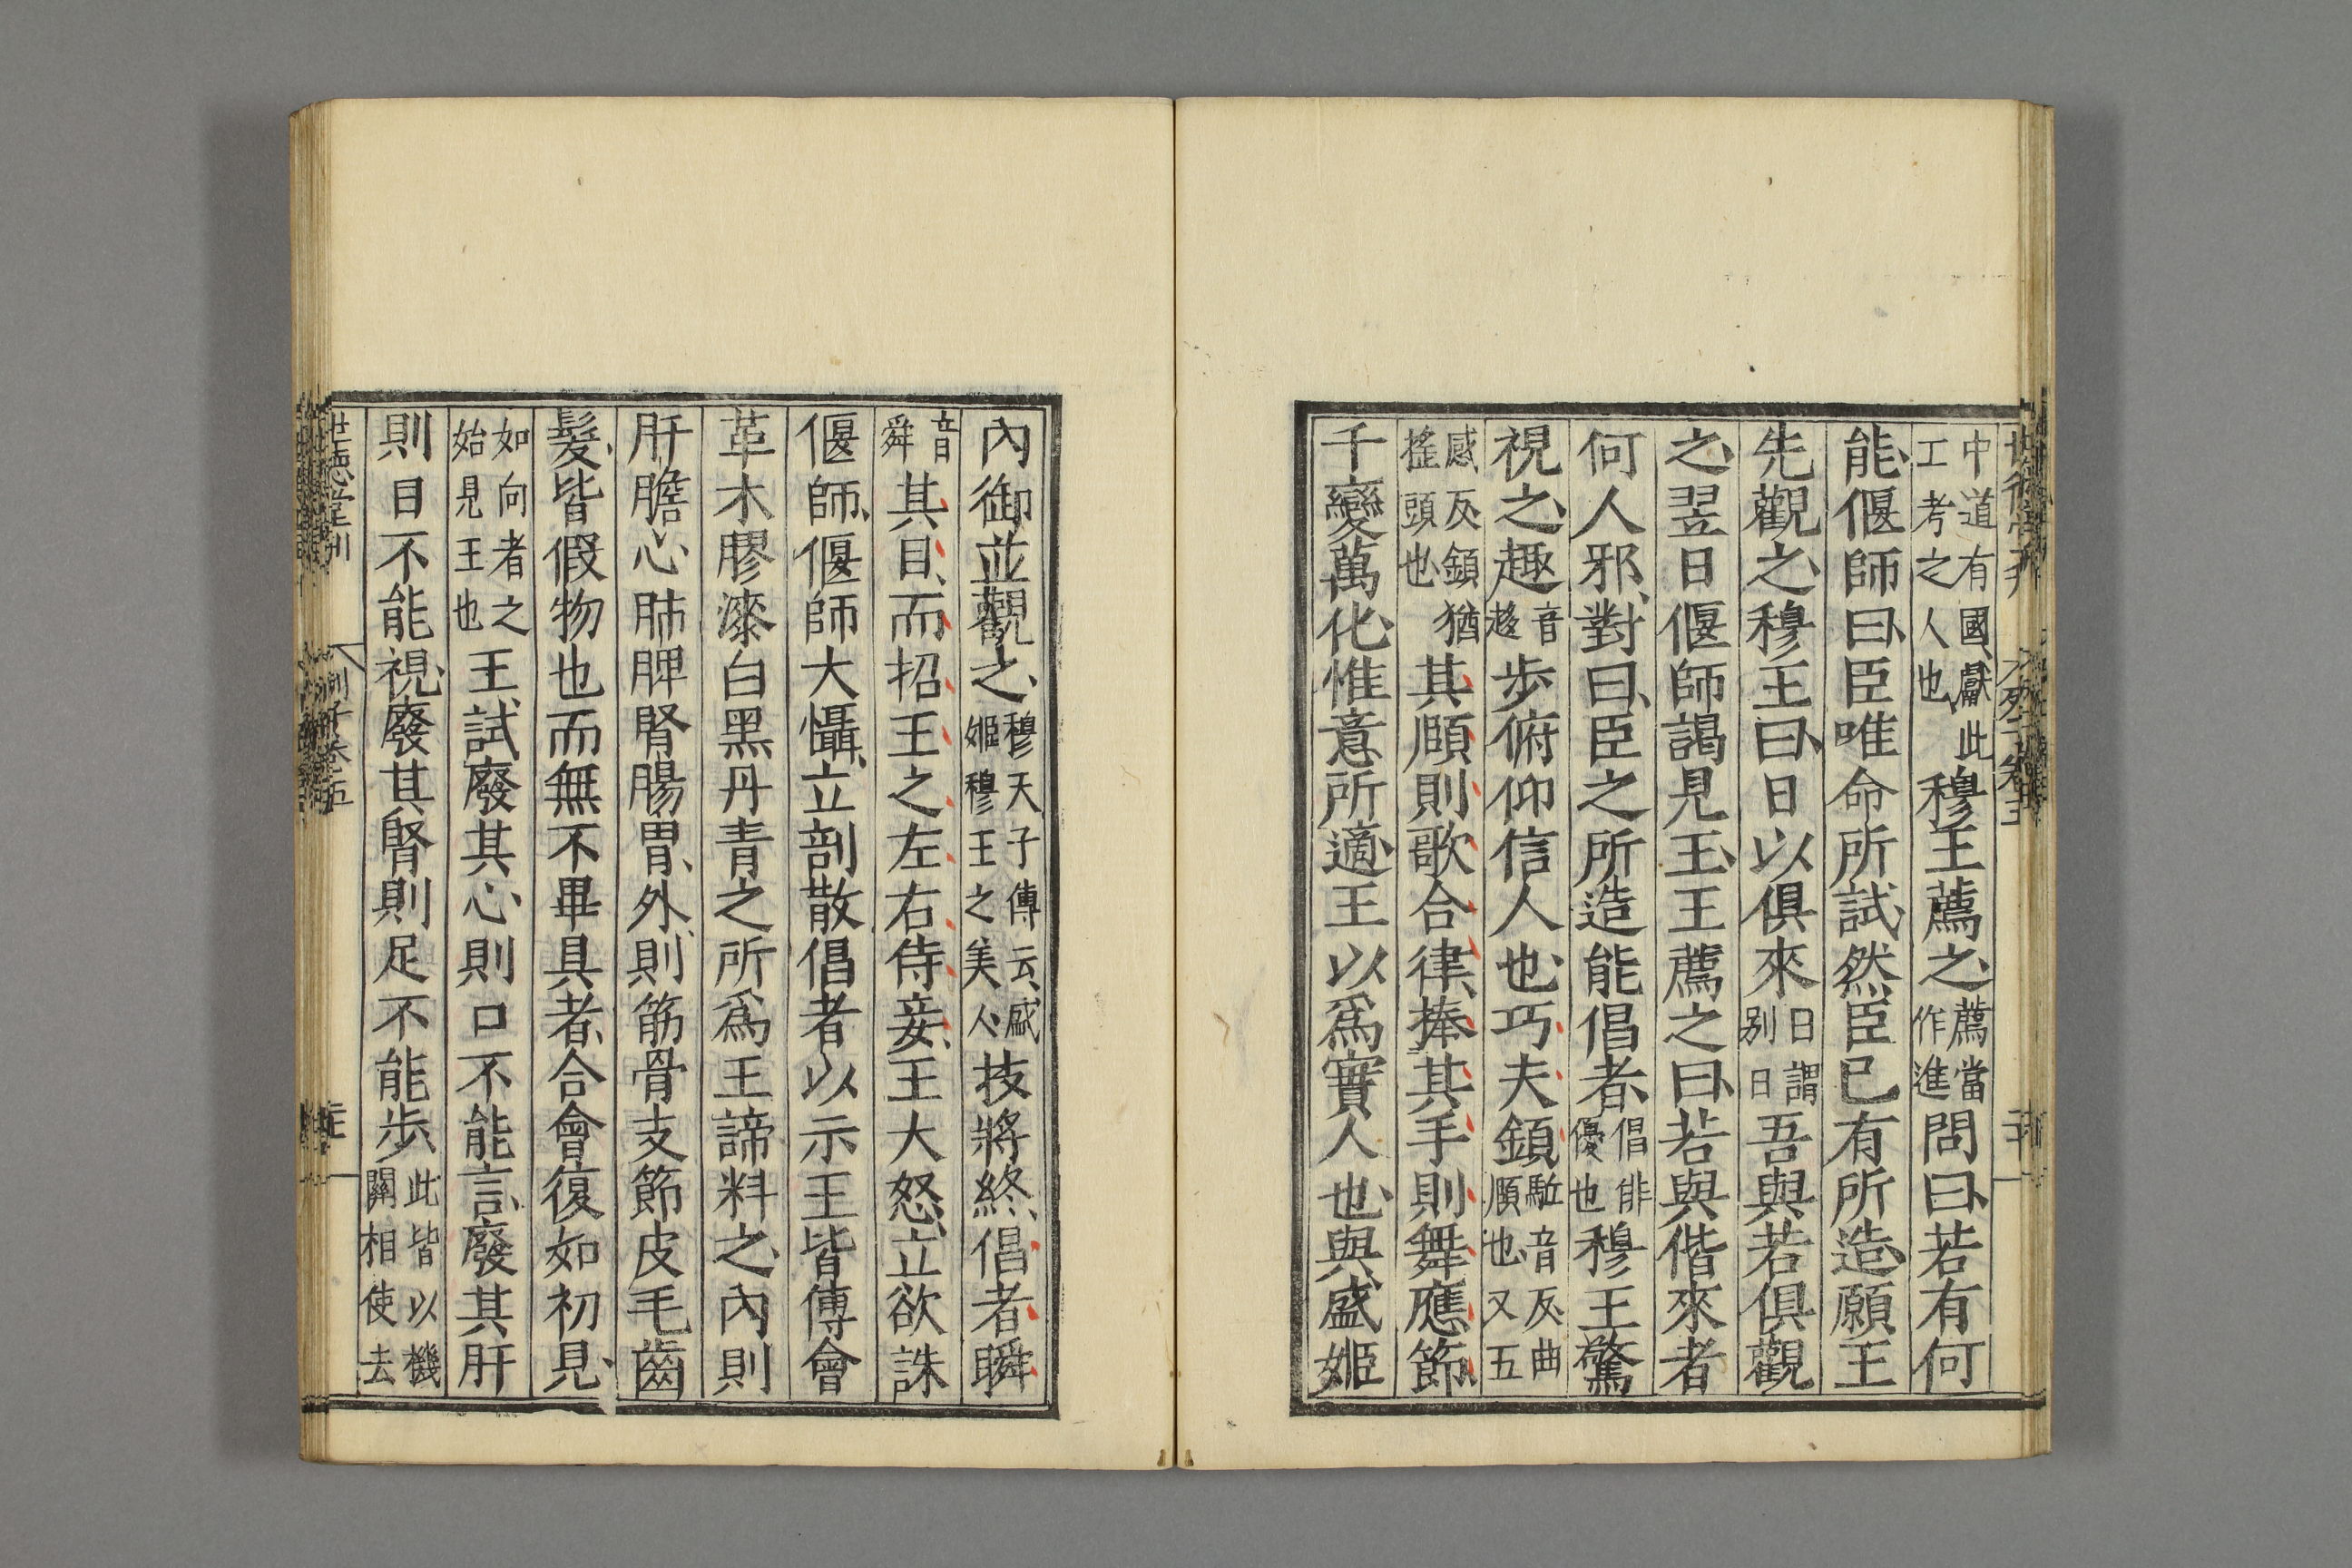 中道有國獻此工考之人也穆王薦之薦當作進問曰若有何
能偃師曰臣唯命所試然臣已有所造願王
先觀之穆王曰日以俱來日謂别日吾與若俱觀
之翌日偃師謁見王王薦之曰若與偕來者
何人邪對曰臣之所造能倡者倡俳優也穆王驚
視之趣音趍步俯仰信人也巧夫顉驅音反曲頤也又五
感反顉猶搖頭也其頤則歌合律捧其手則舞應節
千變萬化惟意所適王以爲實人也與盛姬
內御並觀之穆天子傳云盛姬穆王之美人技將終倡者瞬
音舜其目而招王之左右侍妾王大怒立欲誅
偃師偃師大懾立剖散倡者以示王皆傅會
革木膠漆白黑丹青之所爲王諦料之內則
肝膽心肺脾腎腸胃外則筋骨支節皮毛齒
髮皆假物也而無不畢具者合會復如初見
如向者之始見王也王試廢其心則口不能言廢其肝
則目不能視廢其腎則足不能步此皆以機關相使去
世德堂刊 列子卷五